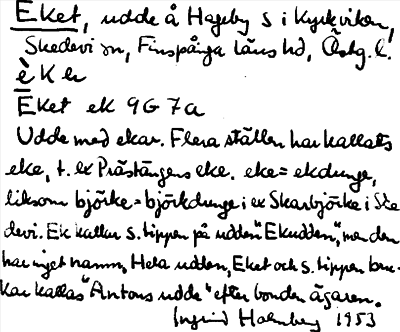 Eket, udde å Hageby S i Kyrkviken,
Skedevi sn, Finspånga läns hd, Östg. l.
è K e
Eket ek 9G 7a
Udde med ekar. Flera ställen har kallats
eke, t. ex Prästängens eke. eke = ekdunge,
liksom björke = björkdunge i ex Skarbjörke i Ske
devi. Ek kallar s. tippen på udden "Ekudden", men den
har inget namn, Hela udden, Eket och s. tippen bru-
kar kallas "Antons udde" efter bonden ägaren.
Ingrid Holmberg 1953